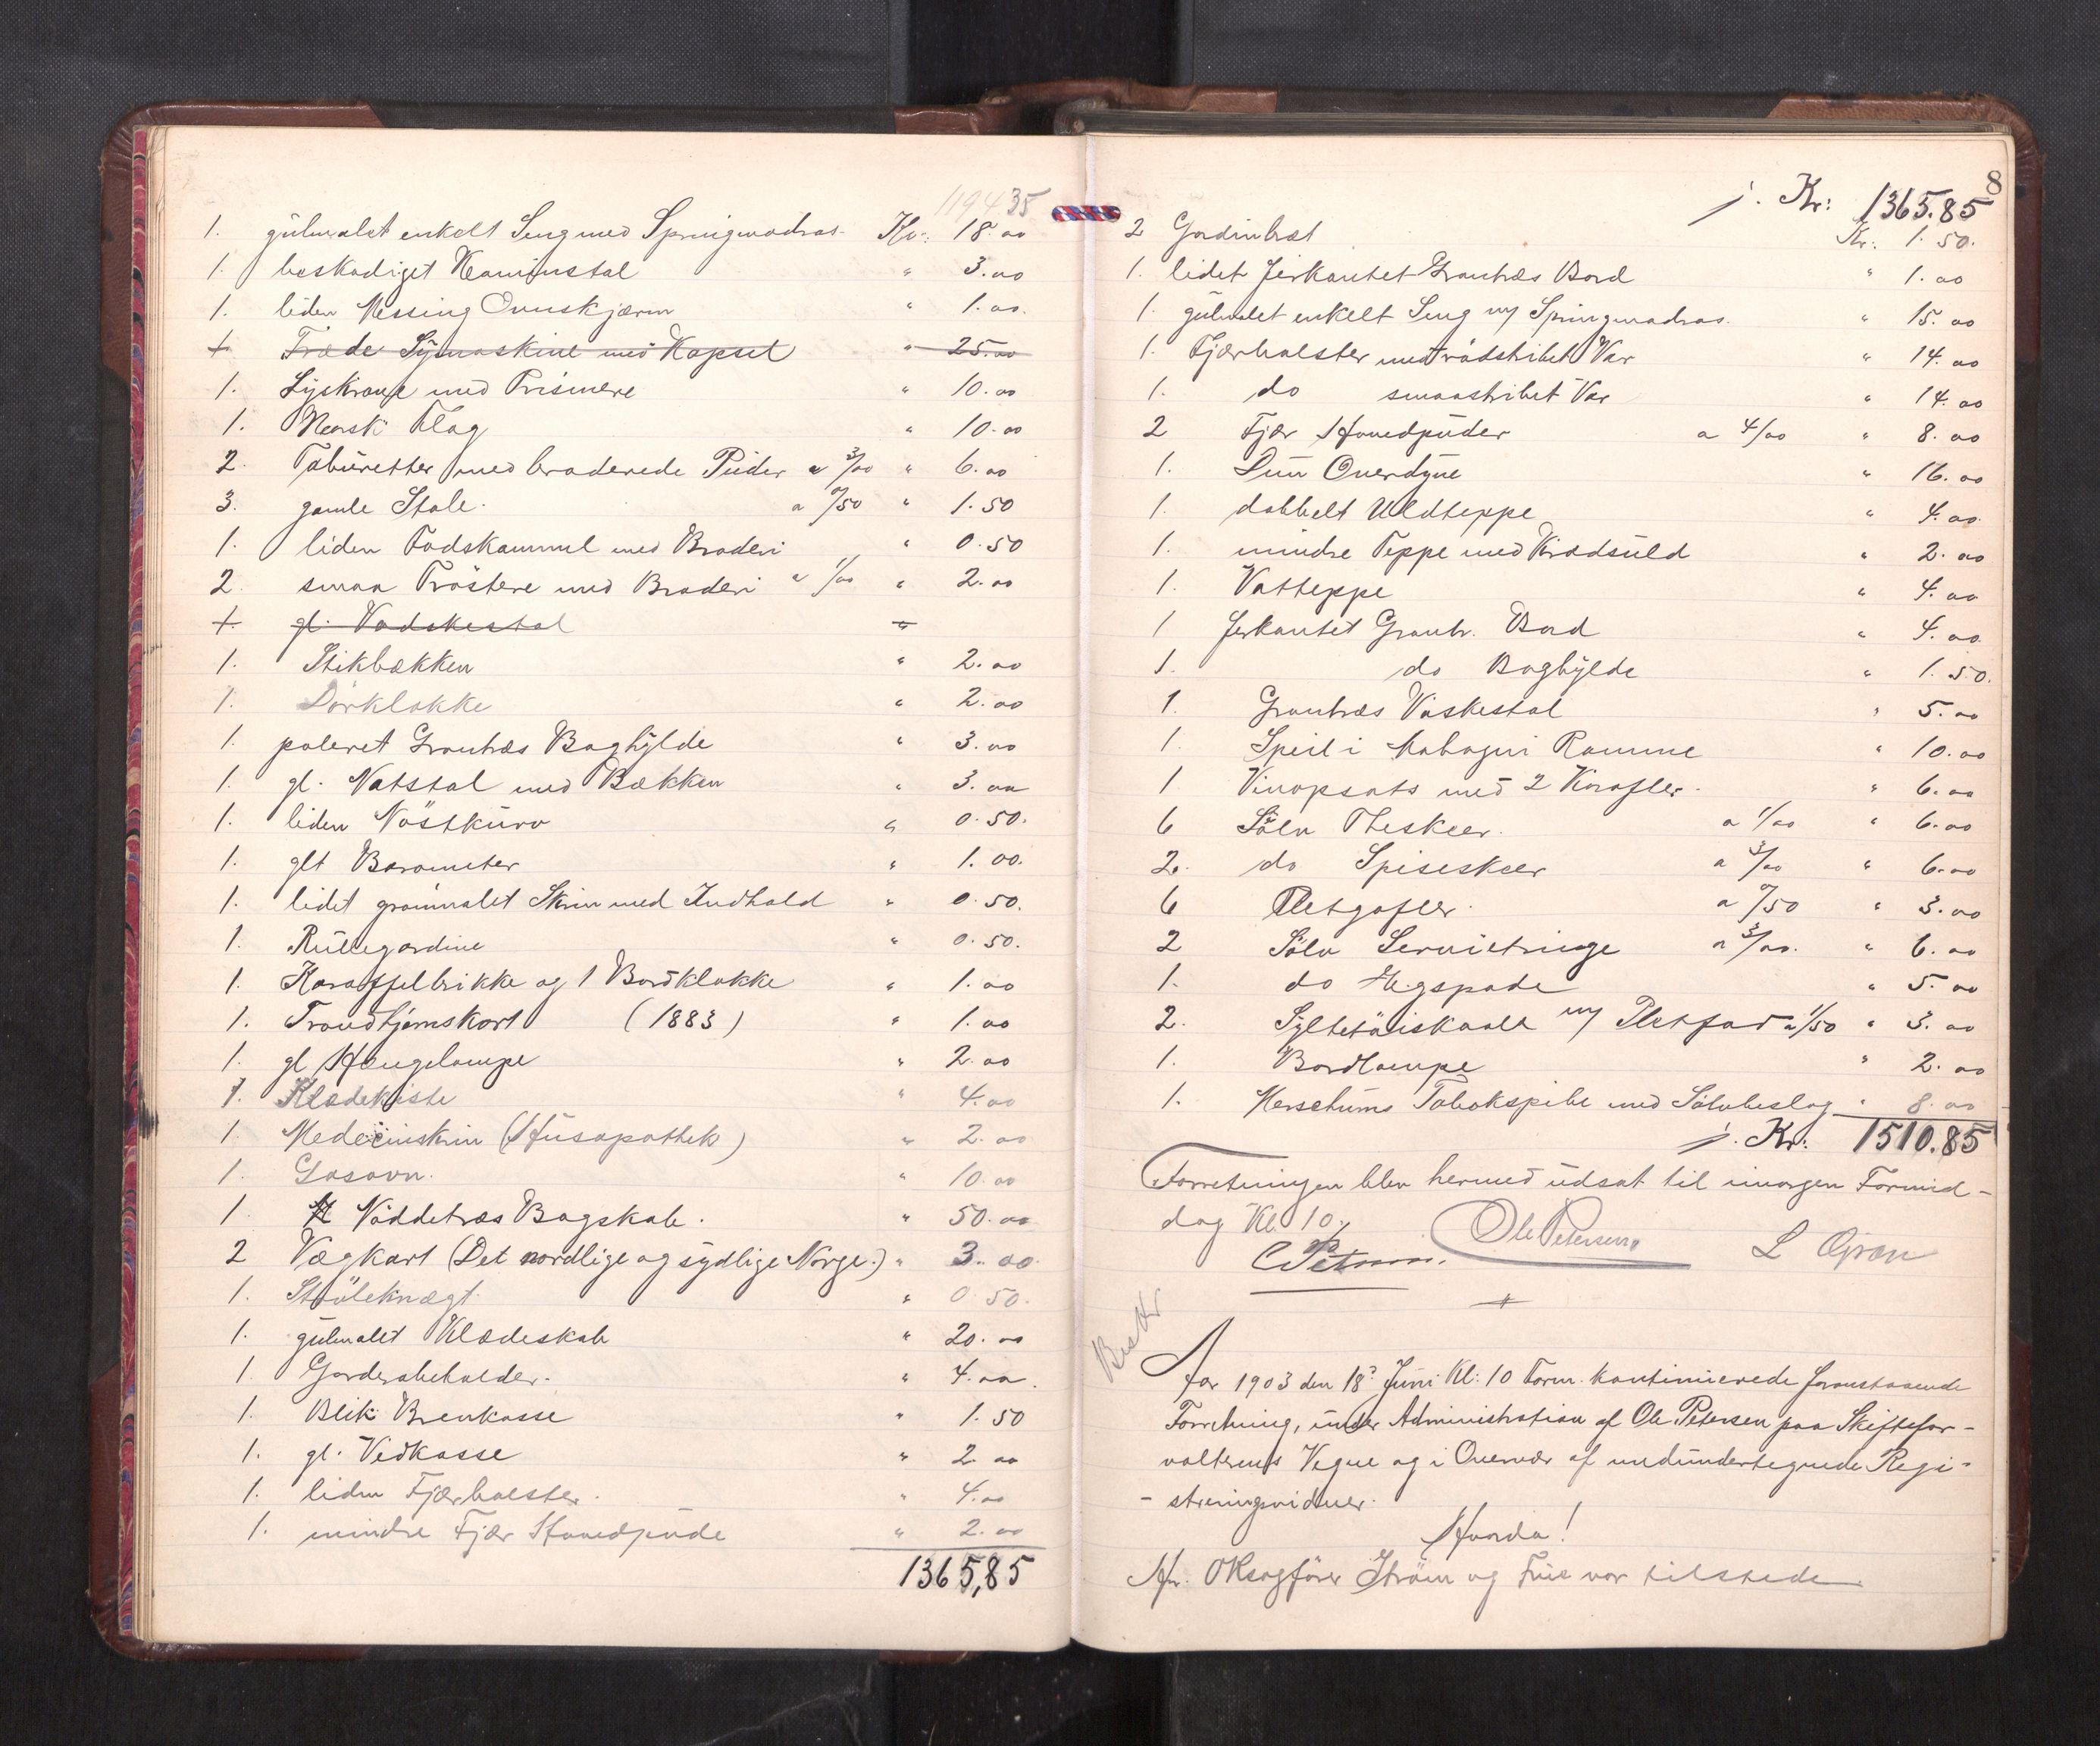 1194 35
1. gulmalet enkelt Seng med Springmadras Kr: 18.00
1. beskadiget Kaminstol " 3.00
1. liden Messing Ovnskjærm " 1.00.
1. Træde Symaskine med Kapsel " 25.00
1. Lyskrone med Prismere " 10.00
1. Norsk Flag " 10.00
2. Taburetter med broderede Puder a 3/00 " 6.00
3. gamle Stole. a 0/50 " 1.50
1. liden Fodskammel med Broderi " 0.50
2. smaa Tröstere med Broderi a 1/00 " 2.00
1. gl. Vadskestol "
1. Stikbækken " 2.00
1. Dörklokke " 2.00
1. poleret Grantræs Boghylde " 3.00
1. gl. Natstol med Bækken " 3.00
1. liden Nöstkurv " 0.50.
1. glt Barometer " 1.00.
1. lidet grönmalet Skrin med Indhold " 0.50.
1. Rullegardine " 0.50.
1. Karaffelbrikke og 1 Bordklokke " 1.00
1. Trondhjemskart (1883) " 1.00
1. gl Hængelampe " 2.00
1. Klædekiste " 4.00
1. Medecinskrin (Husapothek) " 2.00
1. Gasovn. " 10.00
1 Nöddetræs Bogskab. " 50.00
2 Vægkart (Det nordlige og sydlige Norge.) " 3.00.
1. Stövleknægt. " 0.50.
1. gulmalet Klædeskab " 20.00
1. Garderobeholder. " 4.00.
1. Blik Brenkasse " 1.50
1. gl. Vedkasse " 2.00
1. liden Fjærbolster. " 4.00
1. mindre Fjær Hovedpude " 2.00
1365,85
8
j. Kr: 1365.85
2 Gardinbræt Kr: 1.50.
1. lidet firkantet Grantræs Bord " 1.00
1. gulmalet enkelt Seng m/ Springmadras. " 15.00
1. Fjærbolster med rödstribet Var " 14.00
1. do smaastribet Var " 14.00
2 Fjær Hovedpuder a 4/00 " 8.00
1. Dun Overdyne " 16.00
1. dobbelt Uldteppe " 4.00.
1. mindre Teppe med Krødsuld " 2.00
1. Vatteppe " 4.00
1 firkantet Grantr. Bord " 4.00.
1. do Boghylde " 1.50.
1. Grantræs Vaskestol " 5.00
1. Speil i Mahogni Ramme " 10.00
1 Vinopsats med 2 Karafler. " 6.00
6 Sölv Theskeer. a 1/00 " 6.00
2. do Spiseskeer a 3/00 " 6.00
6 Pletgafler. a 0/50 " 3.00
2 Sölv Servietringe a 3/00. " 6.00
1. do Ægspade " 5.00
2. Syltetöiskaale m/ Pletfad a 1/50 " 3.00
1. Bordlampe " 2.00
1. Merschums Tobakspibe med Sölvbeslag " 8.00
j. Kr: 1510.85
Forretningen blev hermed udsat til imorgen Formid-
dag Kl. 10.
Ole Petersen L Gran
Aar 1903 den 18de Juni Kl: 10 Form. kontinuerede foranstaaende
Forretning, under Administration af Ole Petersen paa Skiftefor-
valterens Vegne og i Overvær af medundertegnede Regi-
- streringsvidner.
Hvorda!
Hr. OKsagförer Ström og Frue var tilstede